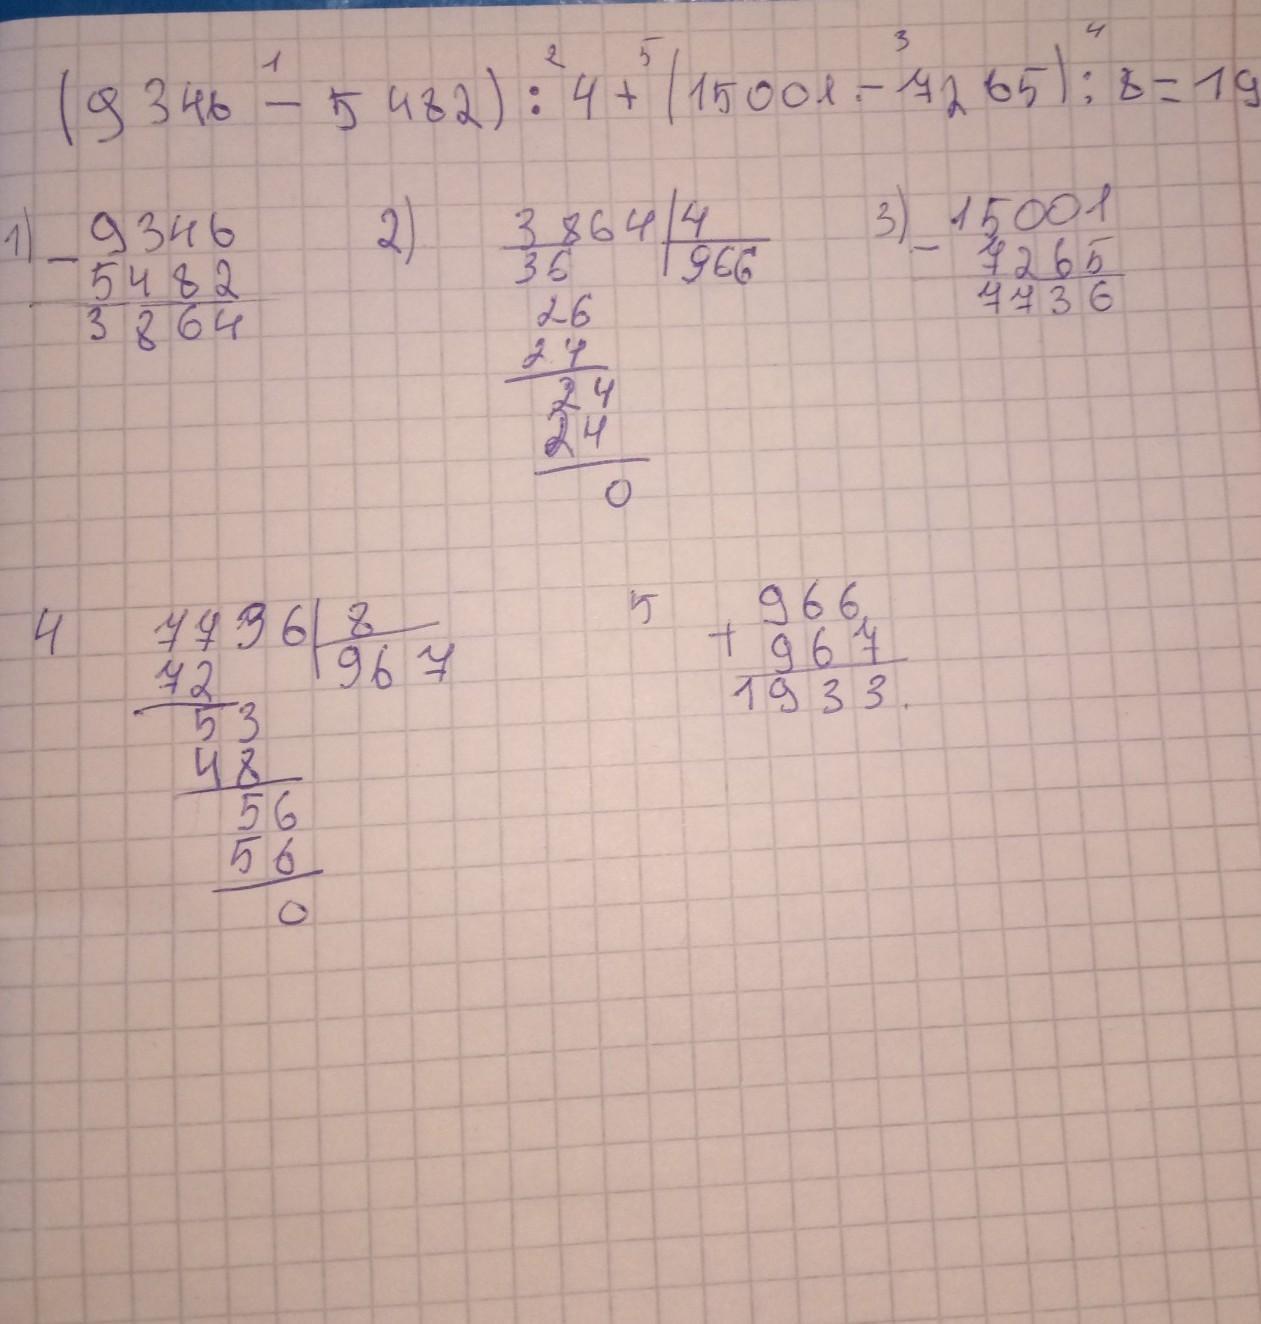 1 2 5 3 4
(9346 - 5482) : 4 + (15001 - 7265) : 8 = 19
1) 9346 2) 3864 | 4 3) 15001
- 5482 36 966 - 7265
3864 26 7736
24
24
24
0
4 7736 | 8 5 966
72 967 + 967
53 1933.
48
56
56
0